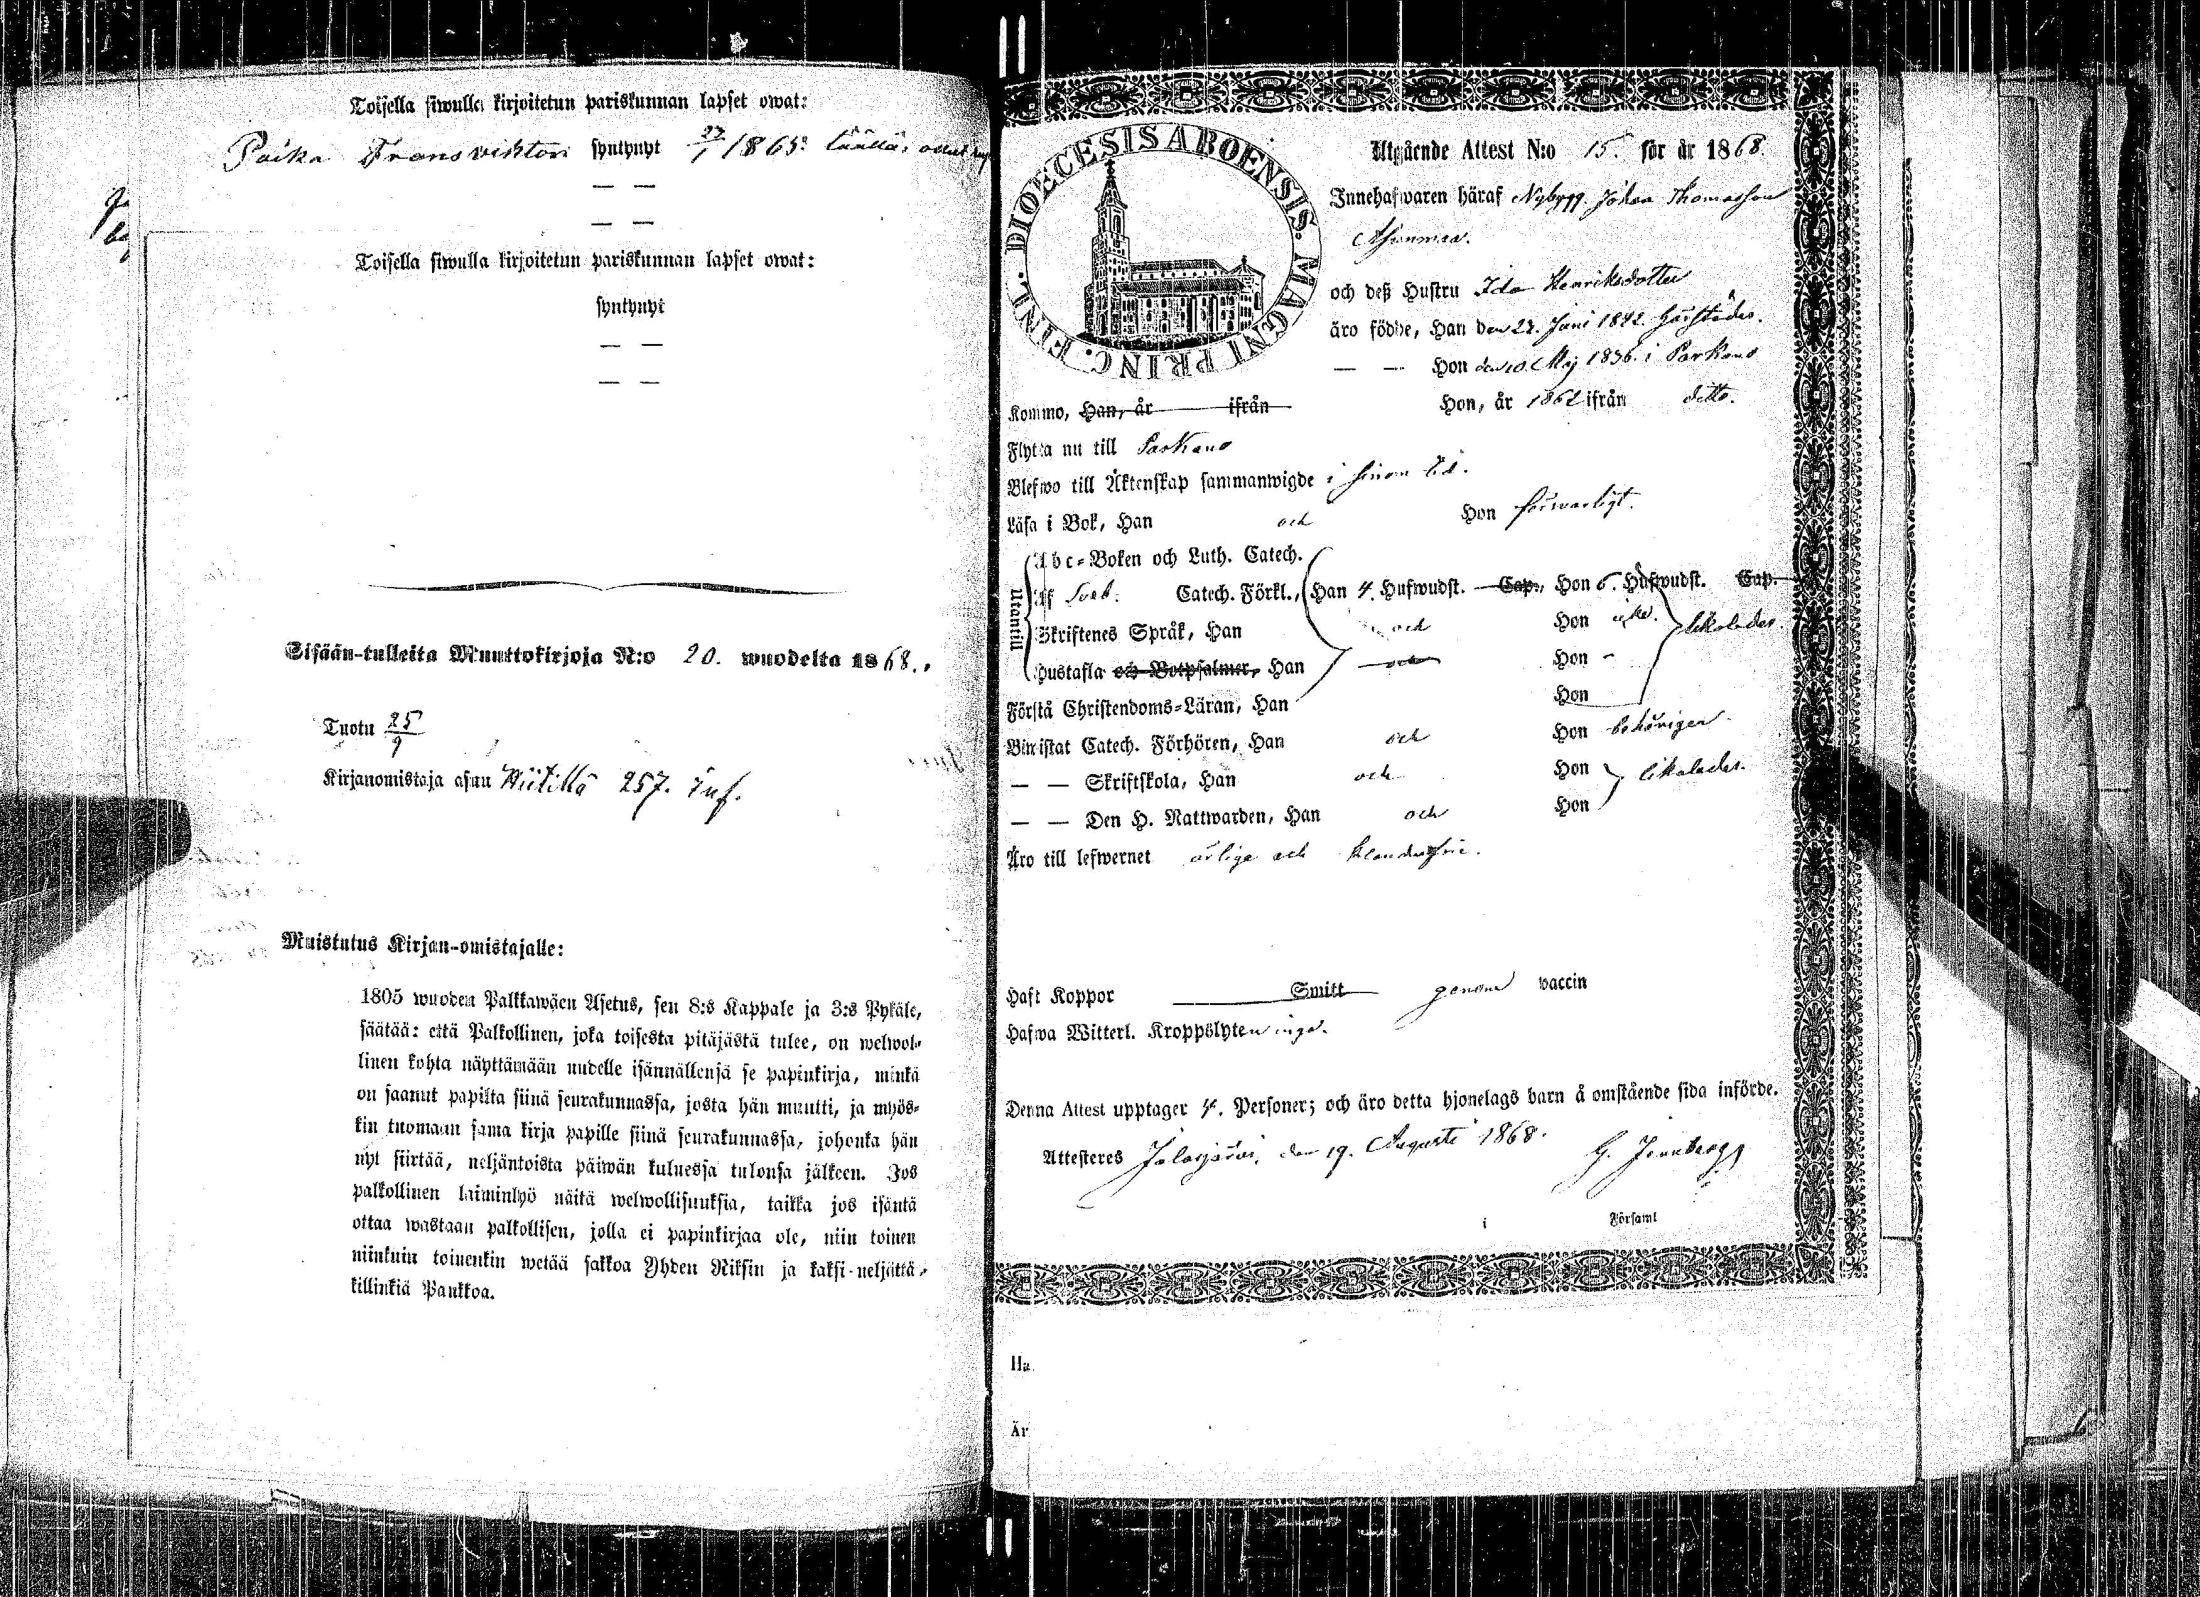 Toisella siwulla kirjoitetun pariskunnan lapset owat:
Poika Frans viktori syntynyt 27/1 1865: täällä,
— —
— —
Toisella siwulla kirjoitetun pariskunnan lapset owat:
syntynyt
— —
— —
Sisään-tulleita Muuttokirjoja N:o 20. wuodelta 1868.
Tuotu 25/9
Kirjanomistaja asuu 257. inf.
Muistutus Kirjan-omistajalle:
1805 wuoden Palkkawäen Asetus, sen 8:s Kappale ja 3:s Pykäle,
säätää: että Palkollinen, joka toisesta pitäjästä tulee, on welwol-
linen kohta näyttämään uudelle isännällensä se papinkirja, minkä
on saanut papilta siinä seurakunnassa, josta hän muutti, ja myös-
kin tuomaan sama kirja papille siinä seurakunnassa, johonka hän
nyt siirtää, neljäntoista päiwän kuluessa tulonsa jälkeen. Jos
palkollinen laiminlyö näitä welwollisuuksia, taikka jos isäntä
ottaa wastaan palkollisen, jolla ei papinkirjaa ole, niin toinen
niinkuin toinenkin wetää sakkoa Yhden Riksin ja kaksi-neljättä-
killinkiä Pankkoa.
DIOECESIS ABOENSIS. MAGNI PRINC. FINL.
Utgående Attest N:o 15. för år 1868.
Innehafwaren häraf Nybygg. Johan Thomasson
och deß Hustru Ida Henriksdotter
äro födde, Han den 27. Juni 1842. härstädes.
— — Hon den 10. Maj 1836. i Parkano
Kommo, Han, år ifrån Hon, år 1862 ifrån ditto.
Flytta nu till Parkano
Blefwo till Äktenskap sammanwigde i sinom tid.
Läsa i Bok, Han och Hon försvarligt.
Utantill
Abc-Boken och Luth. Catech.
Af Sveb. Catech. Förkl., Han 4. Hufwudst. Cap., Hon 6. Hufwudst. Cap.
Skriftenes Språk, Han och Hon icke. likaledes.
Hustafla och Botpsalmer, Han och Hon -
Förstå Christendoms-Läran, Han Hon
Biwistat Catech. Förhören, Han och Hon behörigen.
— — Skriftskola, Han och Hon likaledes.
— — Den H. Nattwarden, Han och Hon
Äro till lefwernet ärliga och klanderfria.
Haft Koppor Smitt genom vaccin
Hafwa Witterl. Kroppslyten inga.
Denna Attest upptager 4. Personer; och äro detta hjonelags barn å omstående sida införde.
Attesteres Jalasjärvi, den 19. Augusti 1868.
i Församl
Ha
Är